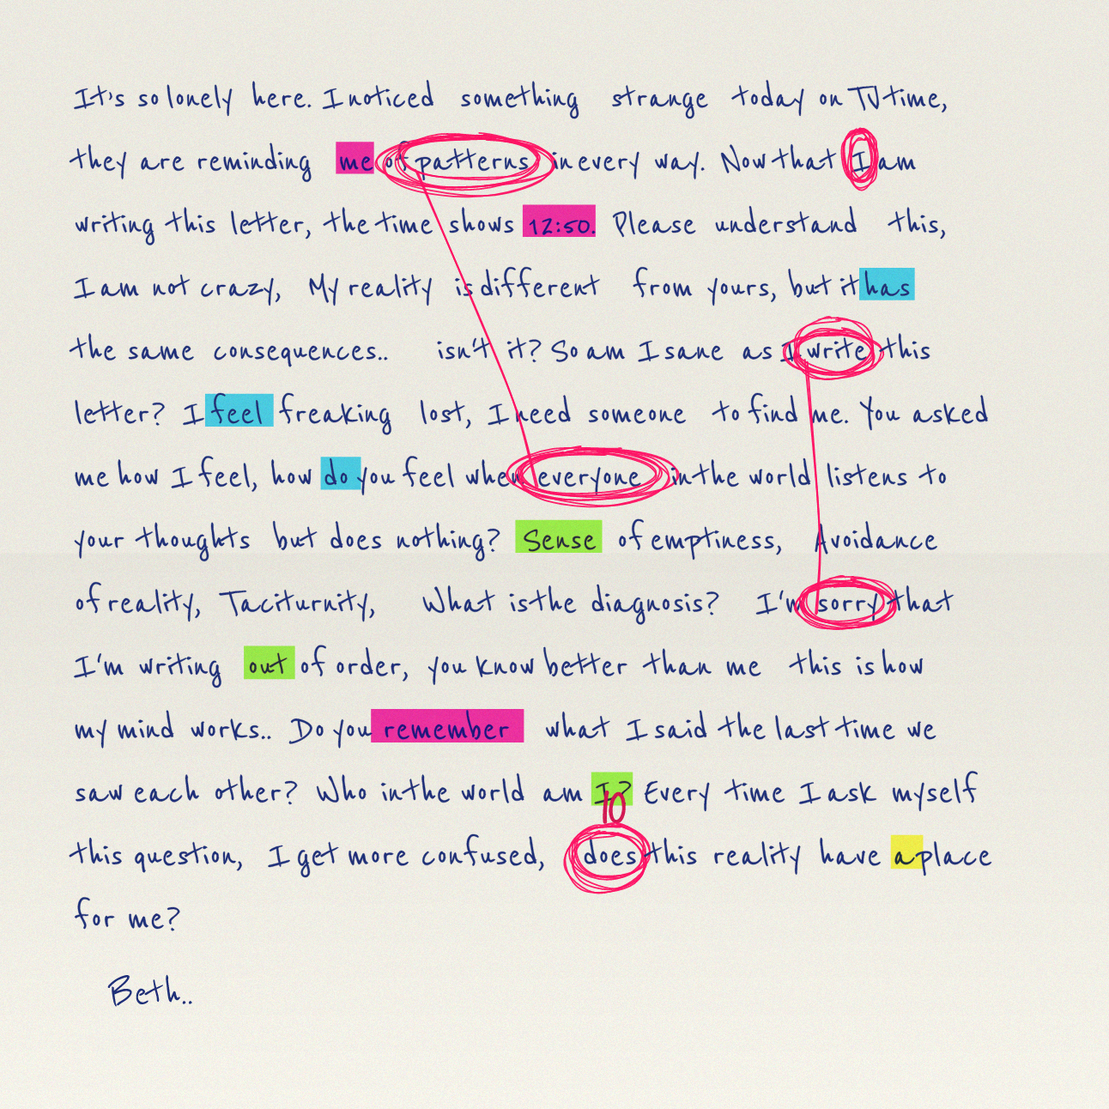 It's so lonely here. I noticed something strange today on TV time,
they are reminding me of patterns in every way. Now that I am
writing this letter, the time shows 12:50. Please understand this,
I am not crazy, My reality is different from yours, but it has
the same consequences.. isn't it? So am I sane as I write this
letter? I feel freaking lost, I need someone to find me. You asked
me how I feel, how do you feel when everyone in the world listens to
your thoughts but does nothing? Sense of emptiness, Avoidance
of reality, Taciturnity, What is the diagnosis? I'm sorry that
I'm writing out of order, you know better than me this is how
my mind works.. Do you remember what I said the last time we
saw each other? Who in the world am I? Every time I ask myself
10
this question, I get more confused, does this reality have a place
for me?
Beth..